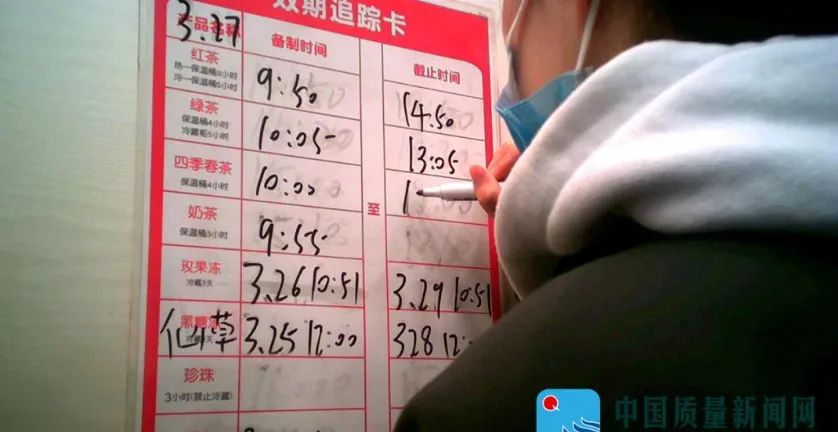 效期追踪卡
3.27
产品名称 备制时间 截止时间
红茶
热—保温桶3小时
冷—保温桶5小时
9:50 14:50
绿茶
保温桶4小时
冷藏柜5小时
10:05 13:05
四季春茶
保温桶4小时
10:00 至 1
奶茶
保温桶3小时
9:55
玫果冻
冷藏3天
3.26 10:51 3.29 10:51
仙草 3.25 12:00 328 12:
珍珠
3小时(禁止冷藏)
中国质量新闻网